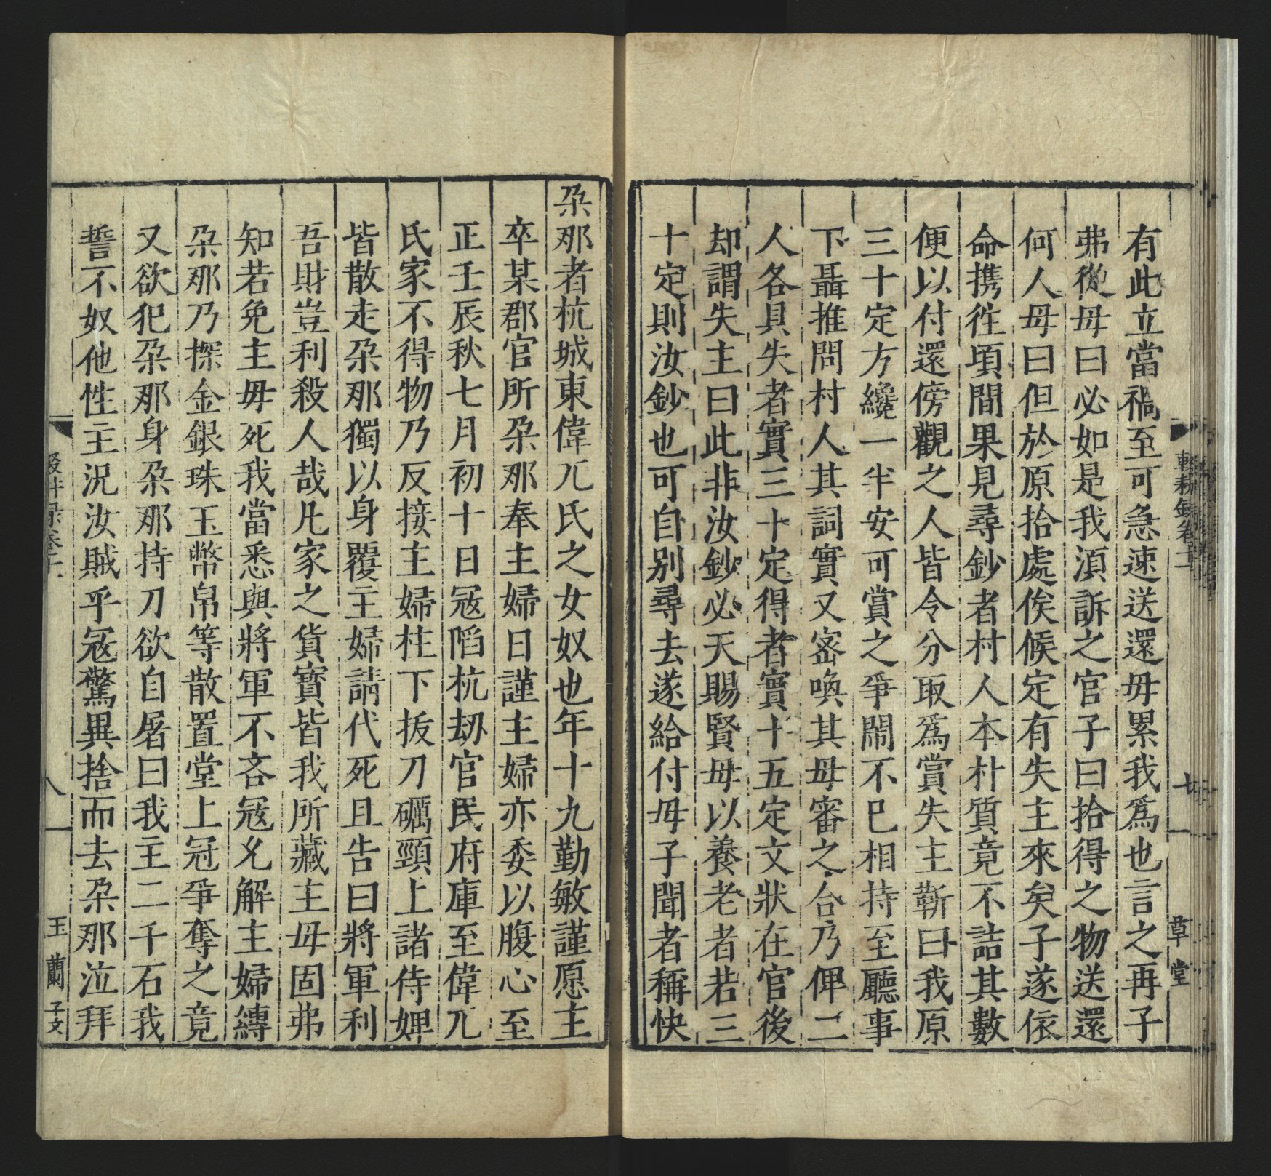 有此立當禍至可急速送還毋累我爲也言之再子
弗從母曰必如是我湏訴之官子曰拾得之物送還
何人母曰但於原拾處俟候定有失主來矣子遂依
命携徃頃間果見尋鈔者村人本朴質竟不詰其數
便以付還傍觀之人皆令分取爲賞失主靳曰我原
三十定方纔一半安可賞之爭鬧不巳相持至廳事
下聶推問村人其詞實又宻喚其母審之合乃俾二
人各具失者實三十定得者實十五定文狀在官後
却謂失主曰此非汝鈔必天賜賢母以養老者若三
十定則汝鈔也可自别尋去遂給付母子聞者稱快
輟耕録卷十一
七
草堂
朶那者杭城東偉兀氏之女奴也年十九勤敏謹愿主
卒某郡官所朶那奉主婦日謹主婦亦委以腹心至
正壬辰秋七月初十日冦䧟杭刼官民府庫至偉兀
氏家不得物乃反接主婦柱下拔刀礪頸上諸侍婢
皆散走朶那獨以身覆主婦請代死且告曰將軍利
吾財豈利殺人哉凡家之貨寳皆我所藏主母固弗
知若免主母死我當悉與將軍不吝冦允解主婦縛
朶那乃探金銀珠玉幣帛等散置堂上冦爭奪之竟
又欲犯朶那身朶那持刀欲自屠曰我主二千石我
誓不奴他性主況汝賊乎冦驚異捨而去朶那泣拜
八
玉蘭